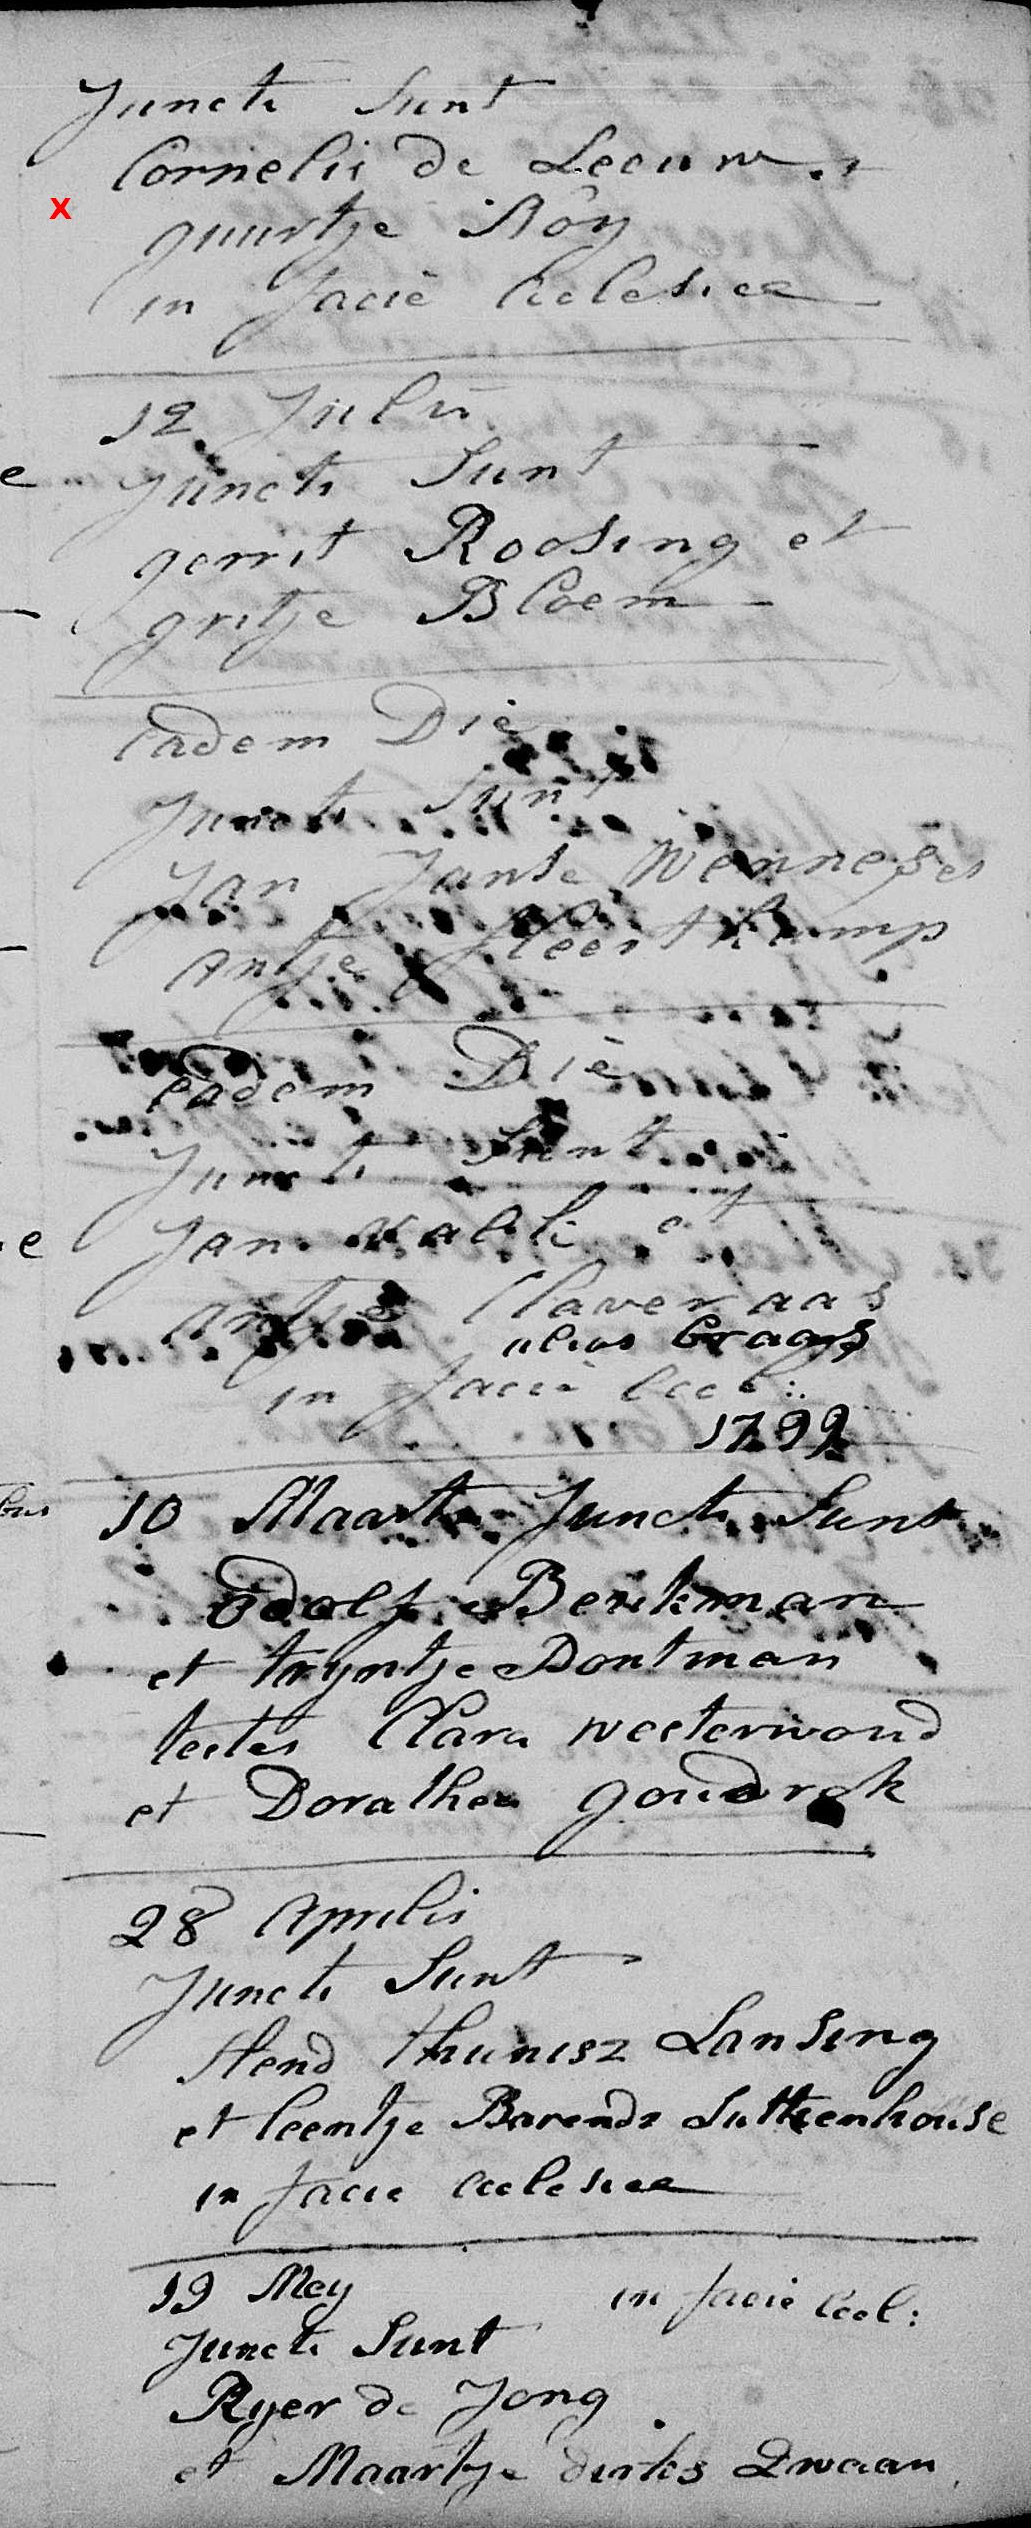 Juncti Sunt
Cornelis de Leeuw et
guurtje Röy
in facie Ecclesiae
12 Julii
Juncti Sunt
gerrit Roosing et
gritje Bloem
Eadem Die
Juncti Sunt
Jan Janse Wennesen
Antje Heerkamp
Eadem Die
Juncti Sunt
Jan Valk et
Antje Claver aas
alias Craays
in facie Eccl:
1799
10 Maarti Juncti Sunt
Adolf Benkman
et tryntje Dontman
testes Clara westerwoud
et Dorathea goudrek
28 Aprilis
Juncti Sunt
Hend thunisz Lansing
et leentje Barends Suttenhouse
in facie Ecclesiae
19 Mey in facie Eccl:
Juncti Sunt
Ryer de Jong
et Maartje dirks Zwaan